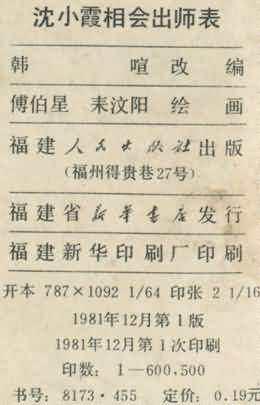 沈小霞相会出师表
韩 喧 改 编
傅伯星 耒汶阳 绘 画
福建人民出版社出版
(福州得贵巷27号)
福建省新华书店发行
福建新华印刷厂印刷
开本 787×1092 1/64 印张 2 1/16
1981年12月第1版
1981年12月第1次印刷
印数：1—600,500
书号：8173·455 定价：0.19元